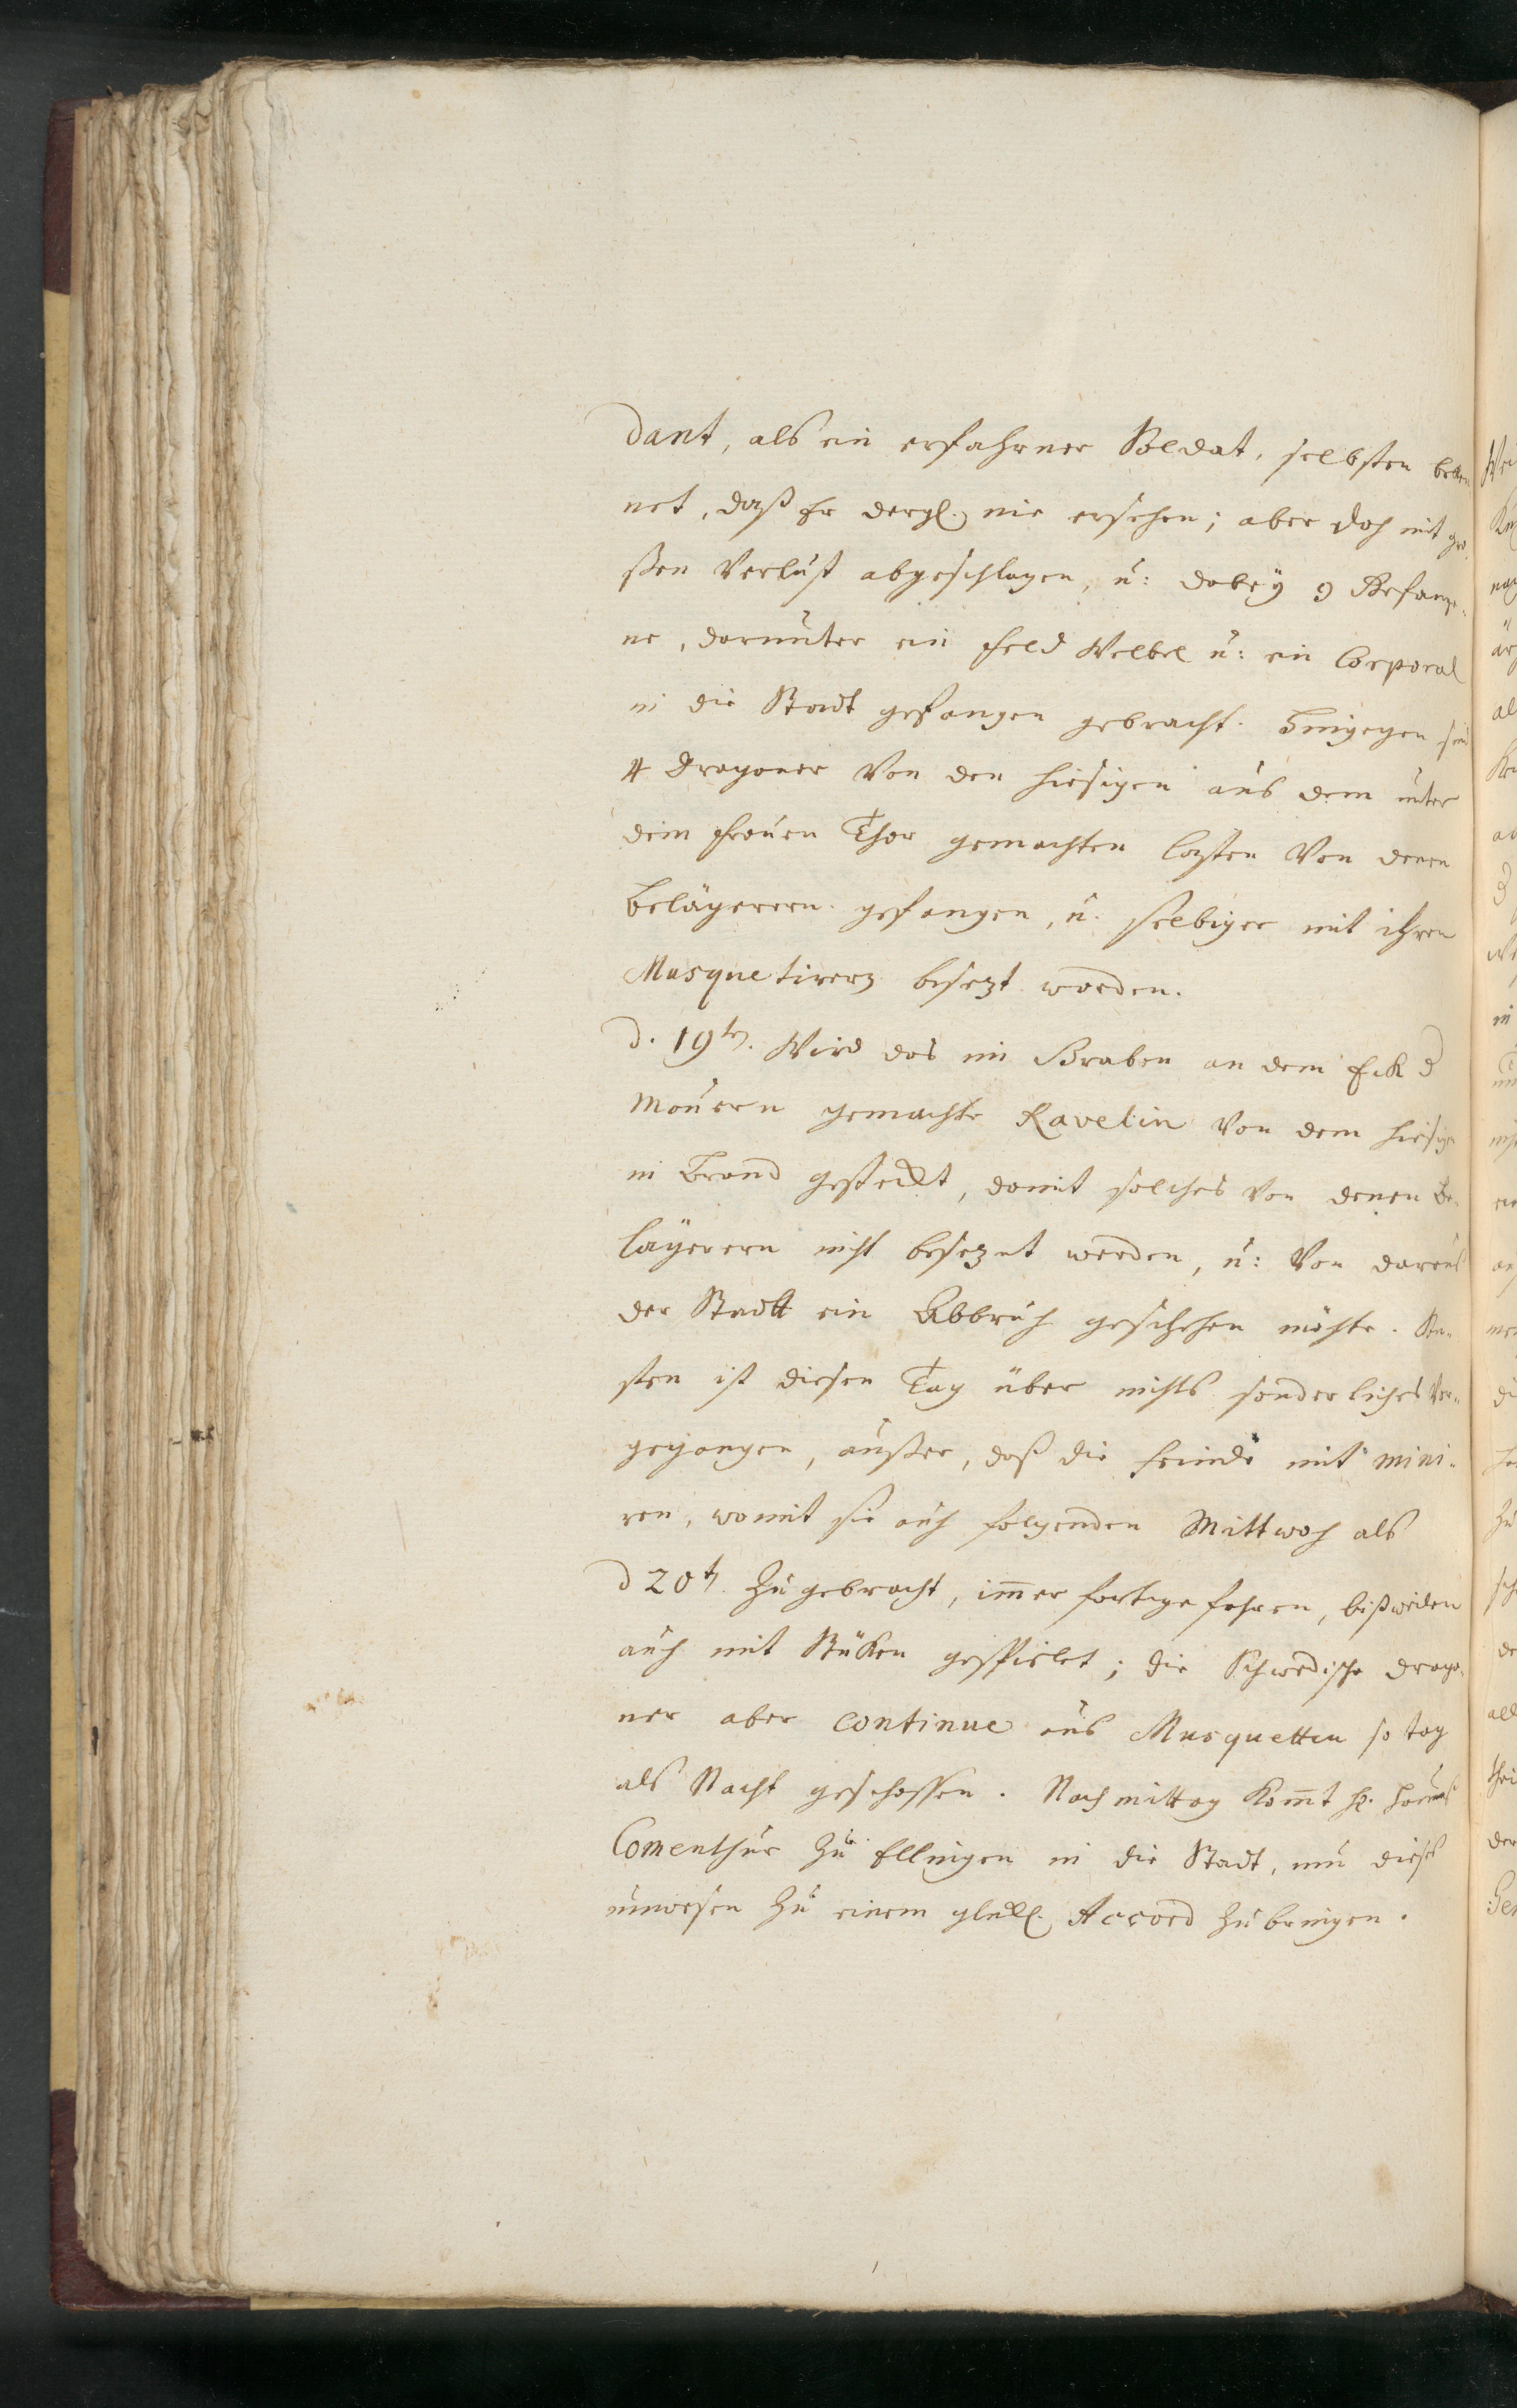 dant, als ein erfahrner Soldat, selbsten beken
net, daß Er dergl. nie ersehen; aber doch mit gro
ßen Verlust abgeschlagen, u: dabeÿ 9 Gefange-
ne, darunter ein Feld Weibel u: ein Corporal
in die Stadt gefangen gebracht. Hingegen sind
4 Dragoner Von den hiesigen aus dem unter
dem Frauen Thor gemachten Casten Von denen
Belägerern gefangen, u. selbiger mit ihren
Musquetirern besezt worden.
d. 19ten. Wird das im Graben an dem Eck d
Mauern gemachte Ravelin Von dem hiesigen
in Brand gesteckt, damit solches Von denen Be-
lägerern nicht besezet werden, u: Von daraus
der Stadt ein Abbruch geschehen möchte. Son-
sten ist diesen Tag über nichts sonderliches Vor-
gegangen, außer, daß die Feinde mit mini-
ren, womit sie auch folgenden Mittwoch als
d 20ten. zugebracht, imer fortgefahren, bißweilen
auch mit Stüken gespielet; die Schwedische Drago-
ner aber continue aus Musquetten so tag
als Nacht geschossen. Nachmittag komt H.
Comenthur zu Ellingen in die Stadt, um dieses
unwesen zu einem glückl. Accord zu bringen.